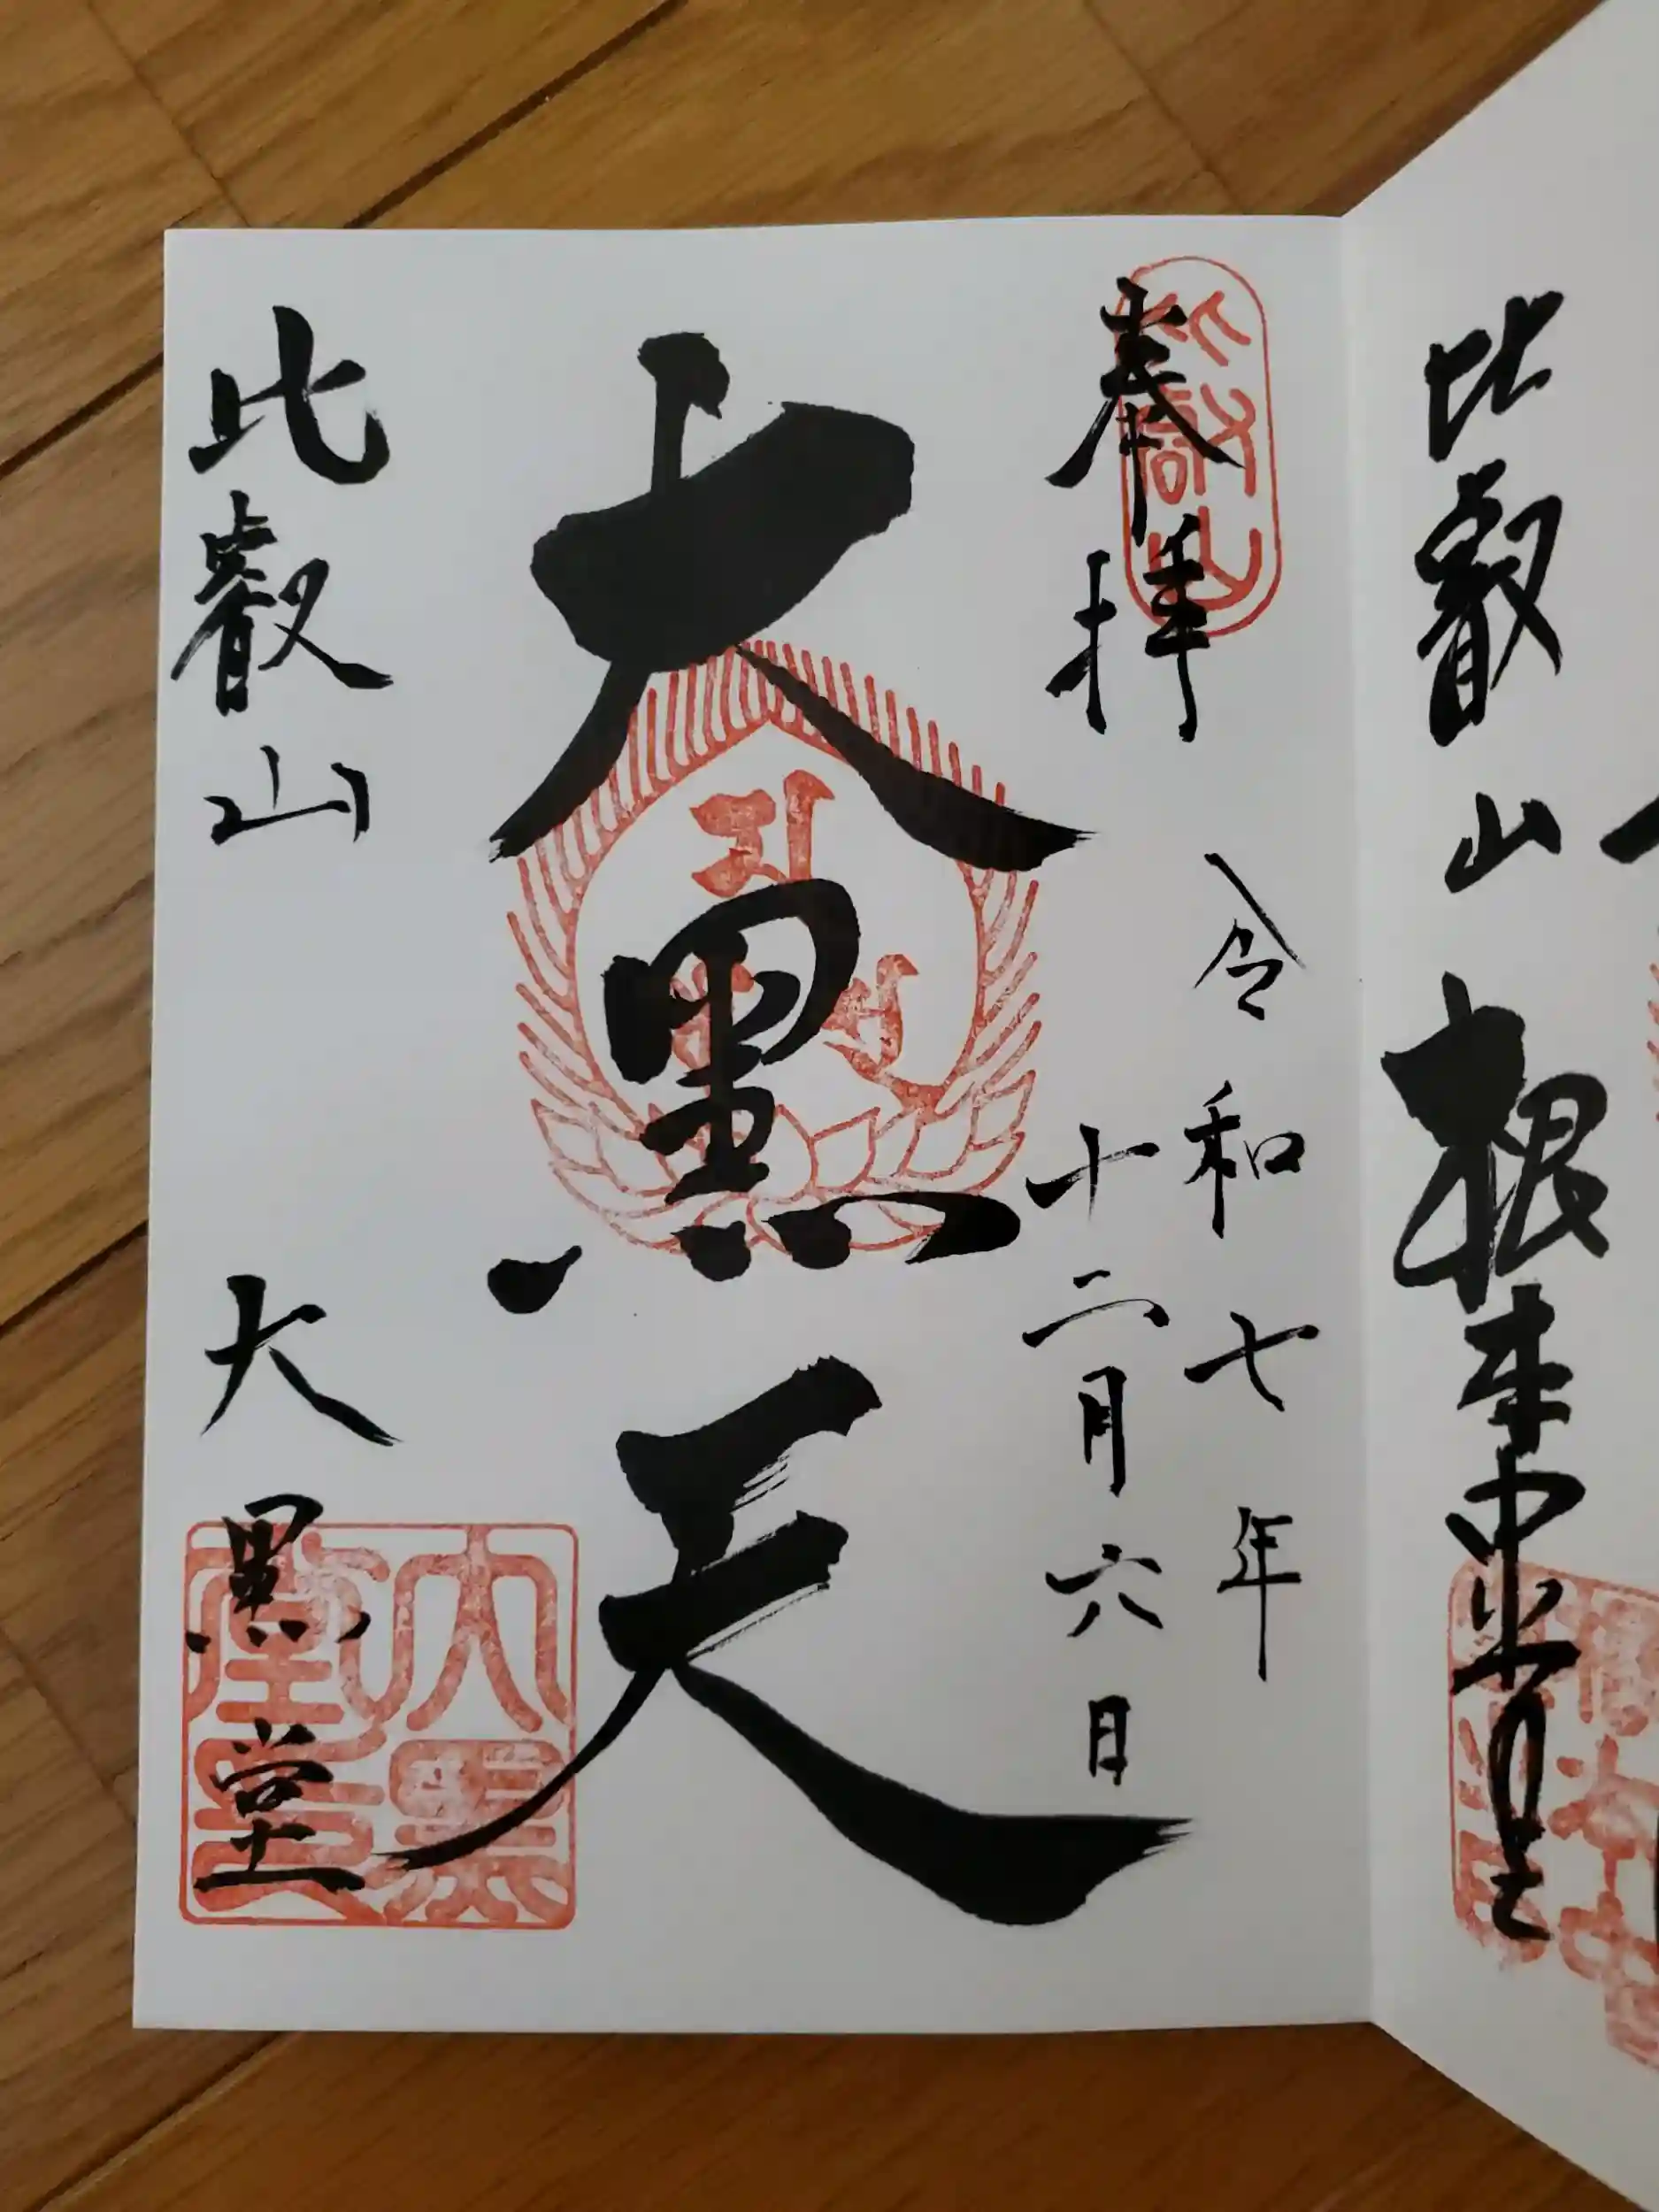 比叡山 根本中堂
奉拝
令和七年
十二月六日
大黒天
比叡山 大黒堂
大黒堂